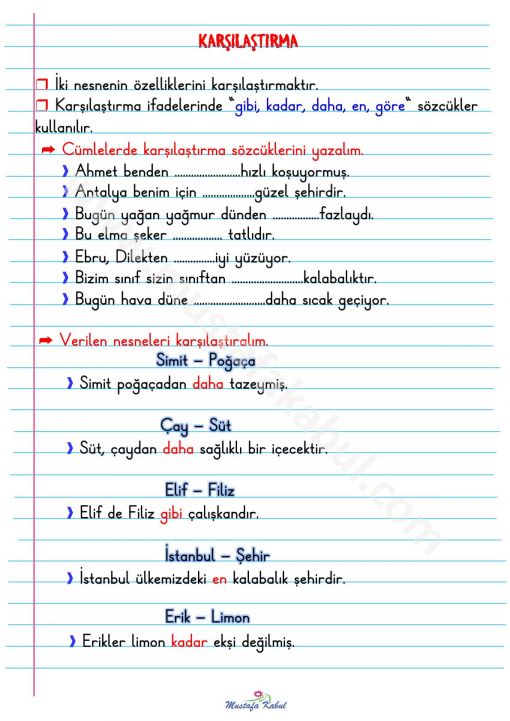 KARŞILAŞTIRMA
❒ İki nesnenin özelliklerini karşılaştırmaktır.
❒ Karşılaştırma ifadelerinde “gibi, kadar, daha, en, göre“ sözcükler
kullanılır.
➦ Cümlelerde karşılaştırma sözcüklerini yazalım.
❫ Ahmet benden ........................hızlı koşuyormuş.
❫ Antalya benim için ...................güzel şehirdir.
❫ Bugün yağan yağmur dünden .................fazlaydı.
❫ Bu elma şeker .................. tatlıdır.
❫ Ebru, Dilekten ...............iyi yüzüyor.
❫ Bizim sınıf sizin sınıftan ..........................kalabalıktır.
❫ Bugün hava düne ..........................daha sıcak geçiyor.
➦ Verilen nesneleri karşılaştıralım.
Simit – Poğaça
❫ Simit poğaçadan daha tazeymiş.
Çay – Süt
❫ Süt, çaydan daha sağlıklı bir içecektir.
Elif – Filiz
❫ Elif de Filiz gibi çalışkandır.
İstanbul – Şehir
❫ İstanbul ülkemizdeki en kalabalık şehirdir.
Erik – Limon
❫ Erikler limon kadar ekşi değilmiş.
Mustafa Kabul
www.mustafakabul.com